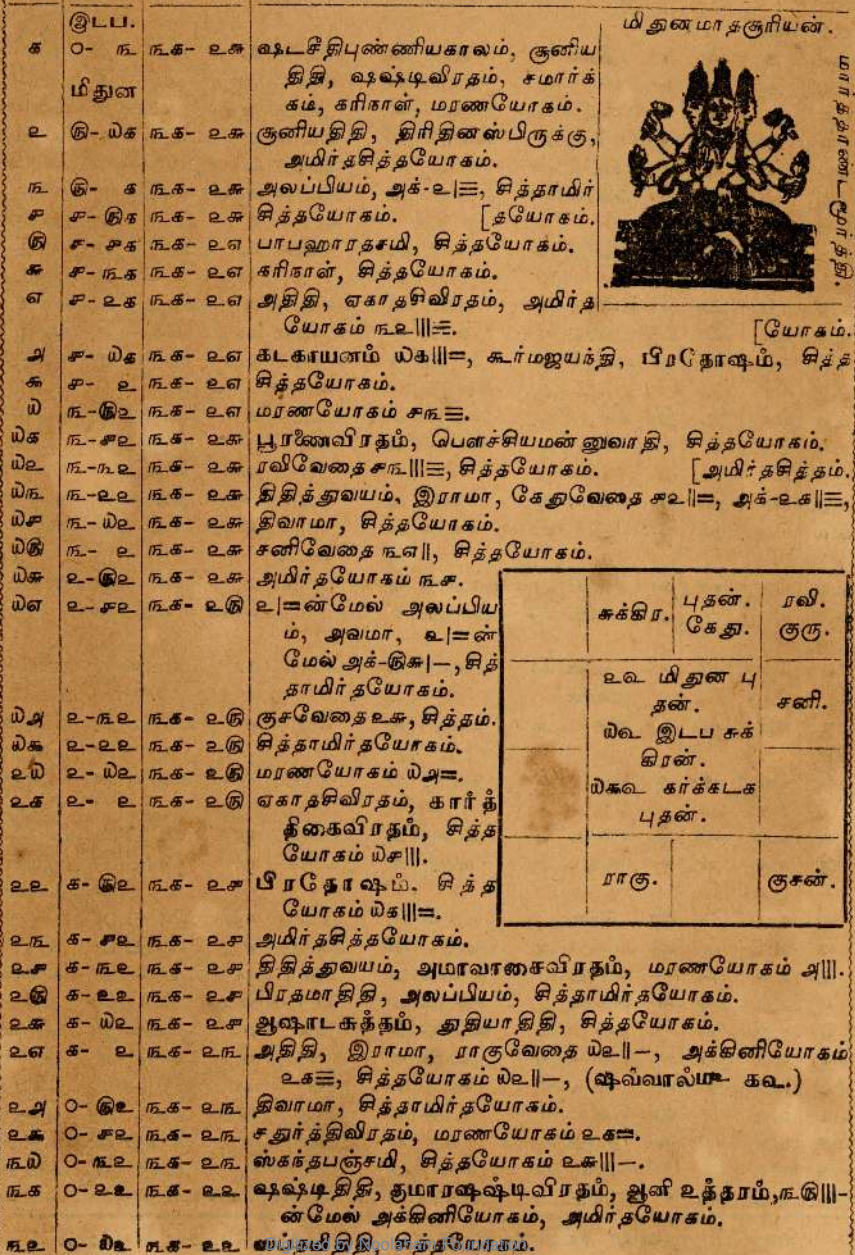 இடப.
மிதுனமாதசூரியன்.
மார்த்தாண்டமூர்த்தி.
௧ ௦- ௩ ௩௧- ௨௬ ஷடசீதிபுண்ணியகாலம், சூனிய
மிதுன திதி, ஷஷ்டிவிரதம், சமார்க்
கம், கரிநாள், மரணயோகம்.
௨ ௫- ௰௧ ௩௧- ௨௬ சூனியதிதி, திரிதினஸ்பிருக்கு,
அமிர்தசித்தயோகம்.
௩ ௫- ௧ ௩௧- ௨௬ அலப்பியம், அக்-௨|☰, சித்தாமிர்
௪ ௪- ௫௧ ௩௧- ௨௬ சித்தயோகம். [தயோகம்.
௫ ௪- ௪௧ ௩௧- ௨௭ பாபஹாரதசமி, சித்தயோகம்.
௬ ௪- ௩௧ ௩௧- ௨௭ கரிநாள், சித்தயோகம்.
௭ ௪- ௨௧ ௩௧- ௨௭ அதிதி, ஏகாதசிவிரதம், அமிர்த
யோகம் ௩௨|||☰. [யோகம்.
௮ ௪- ௰௧ ௩௧- ௨௭ கடகாயனம் ௰௧|||=, கூர்மஜயந்தி, பிரதோஷம், சித்த
௯ ௪- ௨ ௩௧- ௨௭ சித்தயோகம்.
௰ ௩-௫௨ ௩௧- ௨௭ மரணயோகம் ௪௩☰.
௰௧ ௩-௪௨ ௩௧- ௨௬ பூரணைவிரதம், பௌச்சியமன்னுவாதி, சித்தயோகம்.
௰௨ ௩-௩௨ ௩௧- ௨௬ ரவிவேதை ௪௩|||☰, சித்தயோகம். [அமிர்தசித்தம்.
௰௩ ௩-௨௨ ௩௧- ௨௬ திதித்துவயம், இராமா, கேதுவேதை ௪௨||=, அக்-௨௧||☰,
௰௪ ௩- ௰௨ ௩௧- ௨௬ திவாமா, சித்தயோகம்.
௰௫ ௩- ௨ ௩௧- ௨௬ சனிவேதை ௩௭||, சித்தயோகம்.
௰௬ ௨-௫௨ ௩௧- ௨௬ அமிர்தயோகம் ௩௪.
௰௭ ௨-௪௨ ௩௧- ௨௫ ௨|=ன்மேல் அலப்பிய
ம், அவமா, ௨|=ன்
மேல் அக்-௫௬|–, சித்
தாமிர்தயோகம்.
௰௮ ௨-௩௨ ௩௧- ௨௫ குசவேதை ௨௬, சித்தம்.
௰௯ ௨-௨௨ ௩௧- ௨௫ சித்தாமிர்தயோகம்.
௨௰ ௨- ௰௨ ௩௧- ௨௫ மரணயோகம் ௰௮=.
௨௧ ௨- ௨ ௩௧- ௨௫ ஏகாதசிவிரதம், கார்த்
திகைவிரதம், சித்த
யோகம் ௰௪|||.
௨௨ ௧- ௫௨ ௩௧- ௨௪ பிரதோஷம். சித்த
யோகம் ௰௧|||=.
சுக்கிர. புதன். கேது. ரவி. குரு.
௨௳ மிதுன பு
தன்.
௰௳ இடப சுக்
கிரன்.
௰௯௳ கர்க்கடக
புதன்.
சனி.
ராகு. குசன்.
௨௩ ௧- ௪௨ ௩௧- ௨௪ அமிர்தசித்தயோகம்.
௨௪ ௧-௩௨ ௩௧- ௨௪ திதித்துவயம், அமாவாசைவிரதம், மரணயோகம் ௮|||.
௨௫ ௧-௨௨ ௩௧- ௨௪ பிரதமாதிதி, அலப்பியம், சித்தாமிர்தயோகம்.
௨௬ ௧- ௰௨ ௩௧- ௨௪ ஆஷாடசுத்தம், துதியாதிதி, சித்தயோகம்.
௨௭ ௧- ௨ ௩௧- ௨௩ அதிதி, இராமா, ராகுவேதை ௰௨||–, அக்கினியோகம்
௨௧☰, சித்தயோகம் ௰௨||–, (ஷவ்வால்௴ ௧௳.)
௨௮ ௦- ௫௨ ௩௧- ௨௩ திவாமா, சித்தாமிர்தயோகம்.
௨௯ ௦- ௪௨ ௩௧- ௨௩ சதுர்த்திவிரதம், மரணயோகம் ௨௧=.
௩௰ ௦- ௩௨ ௩௧- ௨௩ ஸ்கந்தபஞ்சமி, சித்தயோகம் ௨௬|||–.
௩௧ ௦- ௨௨ ௩௧- ௨௨ ஷஷ்டிதிதி, குமாரஷஷ்டிவிரதம், ஆனி உத்தரம், ௩௫|||–
ன்மேல் அக்கினியோகம், அமிர்தயோகம்.
௩௨ ௦- ௰௨ ௩௧- ௨௨ சித்தயோகம்.